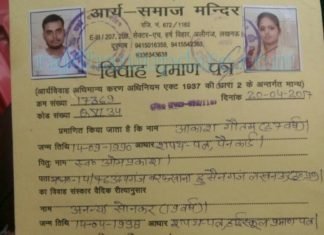 आर्य-समाज मन्दिर
रजि. नं. 672/1182
ई-III/207, 208, सेक्टर-एच, हर्ष विहार, अलीगंज, लखनऊ
दूरभाष 9415016355, 9415542363,
9336343638
विवाह प्रमाण पत्र
(आर्यविवाह अभिमान्य करण अधिनियम एक्ट 1937 की धारा 2 के अन्तर्गत मान्य)
क्रम संख्या 17369 दिनांक 20-04-2017
कोड संख्या
प्रमाणित किया जाता है कि नाम आकाश गौतम (27 वर्ष)
जन्म तिथि 14-09-1990 आधार शपथ-पत्र, पैनकार्ड।
पितृ स्व० ओमप्रकाश।
पता हुसैनगंज लखनऊ
का विवाह संस्कार वैदिक रीत्यानुसार
नाम अनन्या सोनकर (19 वर्ष)।
जन्म तिथि 14-04-1998 आधार शपथ-पत्र, हाईस्कूल प्रमाण पत्र